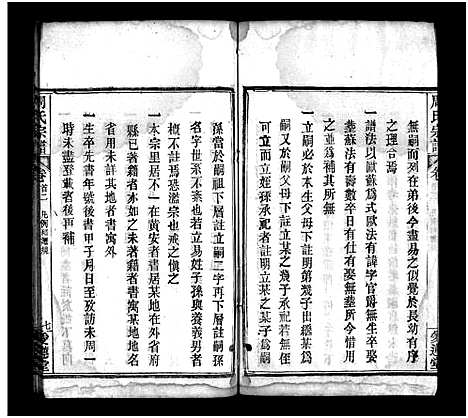 周氏宗譜
無嗣而列在弟後今盡易之似覺於長幼
之理合焉
一譜法以歐蘇爲式歐法有諱字官爵無生卒娶
塟蘇法無壽數卒日有仕有娶無塟所今惜用
之並爲補其所無
一立嗣必於本生父母下註明第幾子出繼某爲
嗣又於嗣父母下註立某之幾子承祀若無嗣
可立而立姪孫承祀者註明立某之子某之子某爲
愛蓮堂
周氏宗譜
卷首二
凡例
孫當於嗣祖下層註立嗣二字再下層註嗣孫
名字世系不紊也若立易姓子孫與養義男者
槪不註焉恐濫宗也戒之愼之
一本宗里居不一在黃安者書居某地在外省府
縣已著籍者亦如之未著籍者書寓某地地名
省用未註其地者書寓外
一生卒先書年號後書甲子月日至攷訪未周一
時未盡登載者後再補
七
愛蓮堂